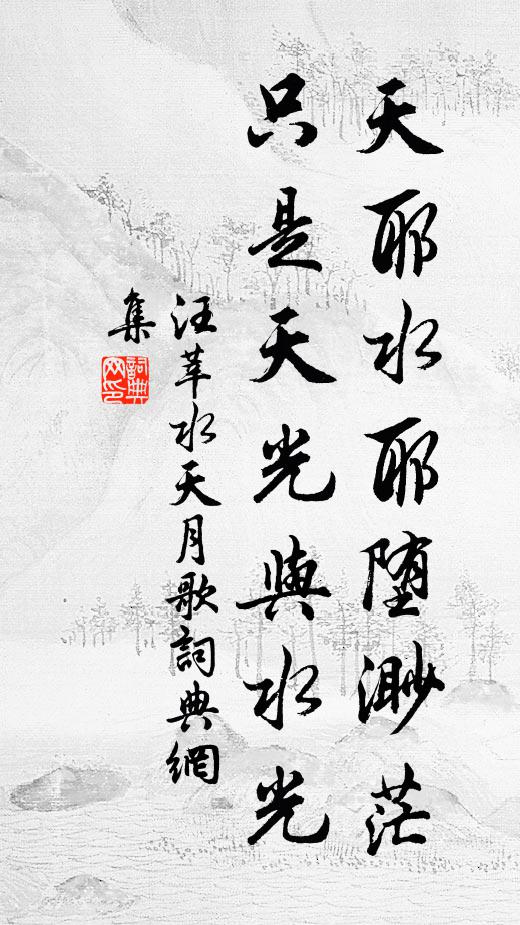 天耶水耶堕渺茫
只是天光與水光
汪莘水天月歌詞典網
集
詞典
网印